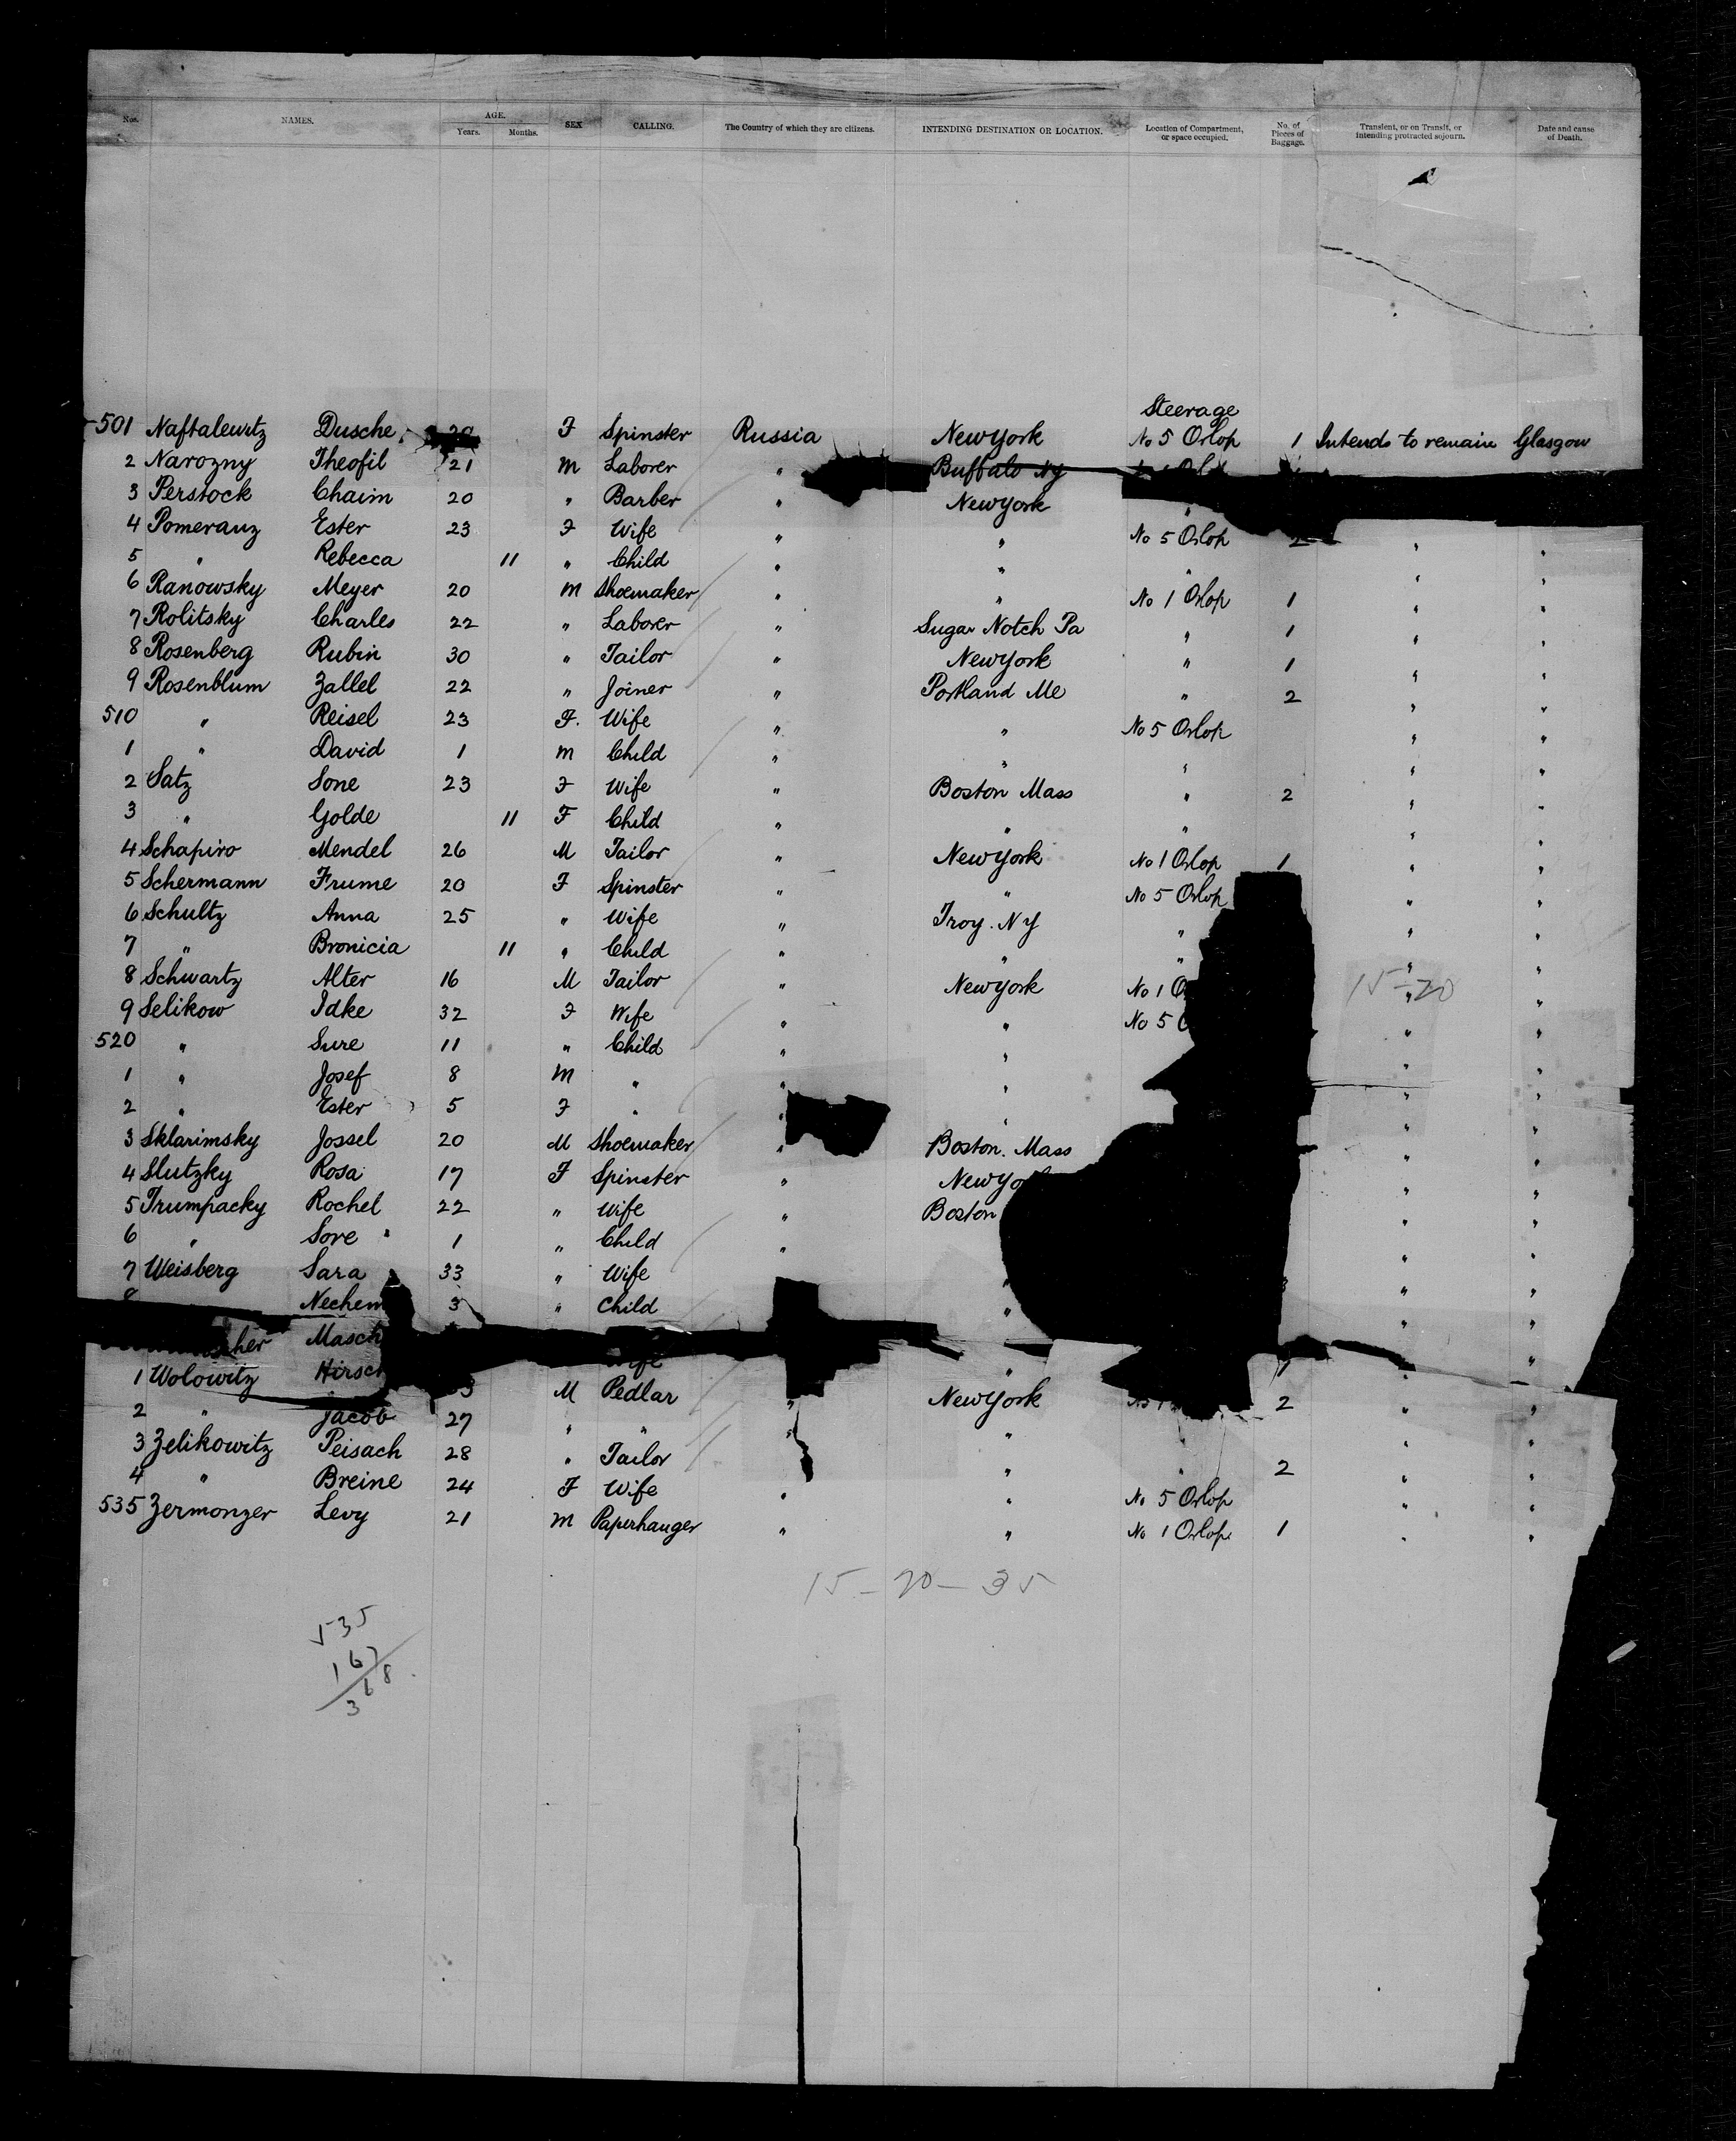 Nos. NAMES. AGE. Years. Months. SEX CALLING. The Country of which they are citizens. INTENDING DESTINATION OR LOCATION. Location of Compartment, or space occupied. No. of Pieces of Baggage. Transient, or on Transit, or intending protracted sojourn. Date and cause of Death.
Steerage
501 Naftalewitz Dusche F Spinster Russia New York No 5 Orlop 1 Intends to remain Glasgow
2 Narozny Theofil 21 M Laborer " Buffalo Ny
3 Perstock Chaim 20 " Barber " New York "
4 Pomeranz Ester 23 F Wife " " No 5 Orlop 2 " "
5 " Rebecca 11 " Child " " " " "
6 Ranowsky Meyer 20 M Shoemaker " " No 1 Orlop 1 " "
7 Rolitsky Charles 22 " Laborer " Sugar Notch Pa " 1 " "
8 Rosenberg Rubin 30 " Tailor " New York " 1 " "
9 Rosenblum Zallel 22 " Joiner " Portland Me " 2 " "
510 " Reisel 23 F. Wife " " No 5 Orlop " "
1 " David 1 M Child " " " " "
2 Satz Sone 23 F Wife " Boston Mass " 2 " "
3 " Golde 11 F Child " " " " "
4 Schapiro Mendel 26 M Tailor " New York No 1 Orlop 1 " "
5 Schermann Frume 20 F Spinster " " No 5 Orlop " "
6 Schultz Anna 25 " Wife " Troy. N Y " " "
7 " Bronicia 11 " Child " " " " "
8 Schwartz Alter 16 M Tailor " New York No 1 " "
15-20
9 Selikow Idke 32 F Wife " " No 5 " "
520 " Sure 11 " Child " " " "
1 " Josef 8 M " " " " "
2 " Ester 5 F " " " " "
3 Sklarimsky Jossel 20 M Shoemaker " Boston. Mass " "
4 Slutzky Rosa 17 F Spinster " New Yo " "
5 Trumpacky Rochel 22 " Wife " Boston " "
6 " Sore 1 " Child " " "
7 Weisberg Sara 33 " Wife " " "
Nechem 3 " Child " " "
her Masch Wife " "
1 Wolowitz Hirsch M Pedlar " New York 2 " "
2 " Jacob 27 " " " " " "
3 Zelikowitz Peisach 28 " Tailor " " 2 " "
4 " Breine 24 F Wife " " No 5 Orlop " "
535 Zermonzer Levy 21 M Paperhanger " " No 1 Orlop 1 " "
15-20-35
535
167
368